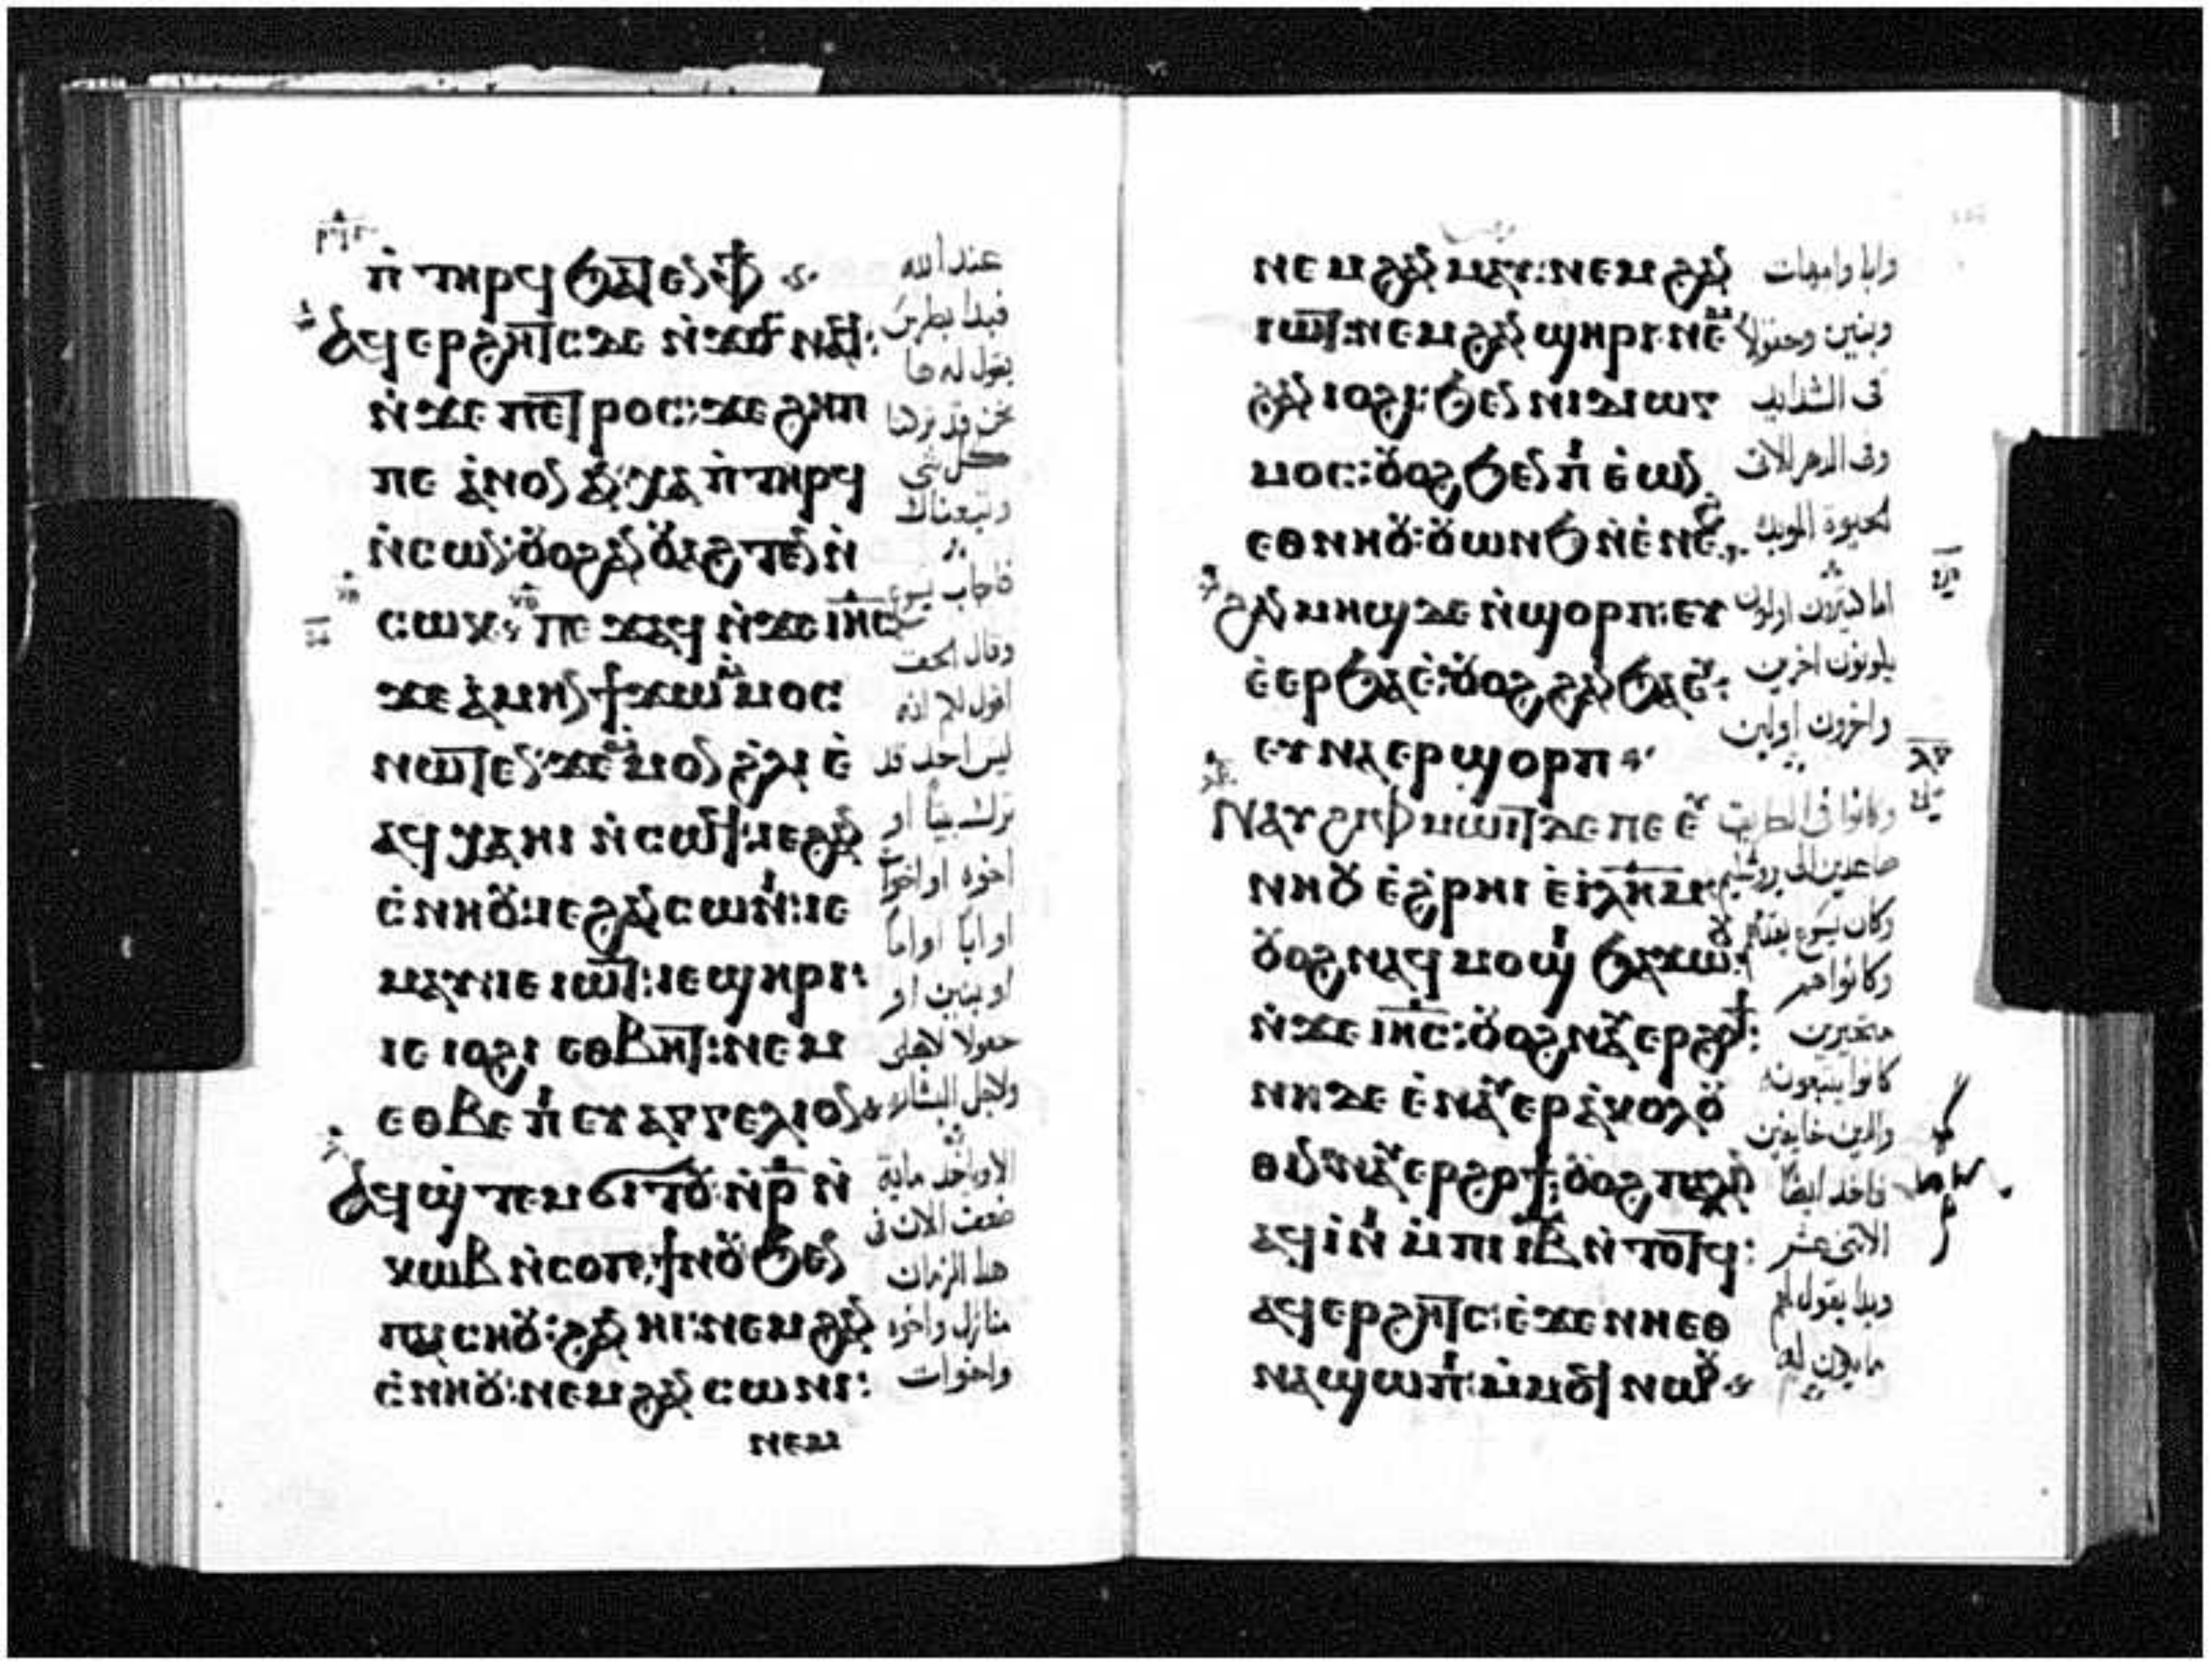 ⲛ̀ ⲧⲏⲣϥ ϧⲁⲧⲉⲛ ⲫϯ
ⲁϥⲉⲣϩⲏⲧⲥ ⲇⲉ ⲛ̀ϫⲟⲥ ⲛⲁϥ:
ⲛ̀ϫⲉ ⲡⲉⲧⲣⲟⲥ: ϫⲉ ϩⲏⲡ
ⲡⲉ ⲁ̀ⲛⲟⲛ ⲁⲛⲭⲁ ⲛ̀ ⲧⲏⲣϥ
ⲛ̀ⲥⲱⲛ: ⲟⲩⲟϩ ⲁⲛⲟⲩⲁϩⲧⲉⲛ ⲛ̀
ⲥⲱⲕ ⲡⲉϫⲁϥ ⲛ̀ϫⲉ ⲓⲏⲥ
ϫⲉ ⲁ̀ⲙⲏⲛ ϯϫⲱ ⲙⲙⲟⲥ
ⲛⲱⲧⲉⲛ: ϫⲉ ⲙⲙⲟⲛ ϩ̀ⲗⲓ ⲉ̀
ⲁϥⲭⲁ ⲏⲓ ⲛ̀ⲥⲱϥ: ⲓⲉ ϩⲁⲛ
ⲥ̀ⲛⲏⲟⲩ: ⲓⲉ ϩⲁⲛ ⲥⲱⲛⲓ: ⲓⲉ
ⲙⲁⲩ: ⲓⲉ ⲓⲱⲧ: ⲓⲉ ϣⲏⲣⲓ:
ⲓⲉ ⲓⲟϩⲓ ⲉⲑⲃⲏⲧ: ⲛⲉⲙ
ⲉⲑⲃⲉ ⲡⲓ ⲉⲩⲁⲅⲅⲉⲗⲓⲟⲛ
ⲁϥϣ̀ⲧⲉⲙϭⲓⲧⲟⲩ ⲛ̀ⲣ̄ ⲛ̀
ⲕⲱⲃ ⲛ̀ⲥⲟⲡ, ϯⲛⲟⲩ ϧⲉⲛ
ⲡⲁⲓⲥⲏⲟⲩ: ϩⲁⲛ ⲏⲓ: ⲛⲉⲙ ϩⲁⲛ
ⲥ̀ⲛⲏⲟⲩ: ⲛⲉⲙ ϩⲁⲛ ⲥⲱⲛⲓ:
ⲛⲉⲙ
عند الله
فبدا بطرس
يقول له ها
نحن قد تركنا
كل شي
وتبعناك
فاجاب يسوع
وقال الحق
اقول لكم انه
ليس احد قد
ترك بيتا او
اخوة او اخوات
او ابا او اما
او بنين او
حقولا لاجلي
ولاجل البشارة
الا وياخذ ماية
ضعف الان في
هذا الزمان
منازل واخوة
واخوات
ⲛⲉⲙ ϩⲁⲛ ⲙⲁⲩ: ⲛⲉⲙ ϩⲁⲛ
ⲓⲱⲧ: ⲛⲉⲙ ϩⲁⲛ ϣⲏⲣⲓ: ⲛⲉⲙ
ϩⲁⲛ ⲓⲟϩⲓ: ϧⲉⲛ ⲛⲓⲇⲓⲱⲅ
ⲙⲟⲥ: ⲟⲩⲟϩ ϧⲉⲛ ⲡⲓ ⲉ̀ⲱⲛ
ⲉⲑⲛⲏⲟⲩ: ⲟⲩⲱⲛϧ ⲛ̀ⲉ̀ⲛⲉϩ
ϩⲁⲛ ⲙⲏϣ ⲇⲉ ⲛ̀ϣⲟⲣⲡ: ⲉⲩ
ⲉ̀ⲉⲣϧⲁⲉ̀: ⲟⲩⲟϩ ϩⲁⲛ ϧⲁⲉⲩ:
ⲉⲩⲛⲁⲉⲣϣⲟⲣⲡ
ⲛⲁⲩϩⲓ ⲫⲙⲱⲓⲧ ⲇⲉ ⲡⲉ ⲉⲩ
ⲛⲏⲟⲩ ⲉ̀ϩ̀ⲣⲏⲓ ⲉ̀ⲓⲗⲏⲙ:
ⲟⲩⲟϩ ⲛⲁϥⲙⲟϣⲓ ϧⲁϫⲱⲟⲩ
ⲛ̀ϫⲉ ⲓⲏⲥ: ⲟⲩⲟϩ ⲛⲁⲩⲉⲣϩⲟϯ:
ⲛⲏ ⲇⲉ ⲉ̀ⲛⲁⲩⲉⲣⲁ̀ⲕⲟⲗⲟⲩ
ⲑⲓⲛ: ⲛⲁⲩⲉⲣϩⲟϯ: ⲟⲩⲟϩ ⲡⲁⲗⲓⲛ
ⲁϥⲓ̀ⲛⲓ ⲙ̀ⲡⲓ ⲓⲃ ⲛ̀ⲧⲟⲧϥ:
ⲁϥⲉⲣϩⲏⲧⲥ: ⲉ̀ϫⲉ ⲛⲏⲉⲑ
ⲛⲁϣⲱⲡⲓ: ⲙ̀ⲙⲟϥ ⲛⲱⲟⲩ
وابا وامهات
وبنين وحقولا
في الشدايد
وفي الدهر الاتي
الحيوة الموبدة
اما كثيرون اولون
يكونون اخرين
واخرون اولين
وكانوا في الطريق
صاعدين الى يروشليم
وكان يسوع يتقدمهم
وكانوا هم
متحيرين
كانوا يتبعونه
والذين خايفين
فاخذ ايضا
الاثني عشر
وبدا يقول لهم
ما يكون له